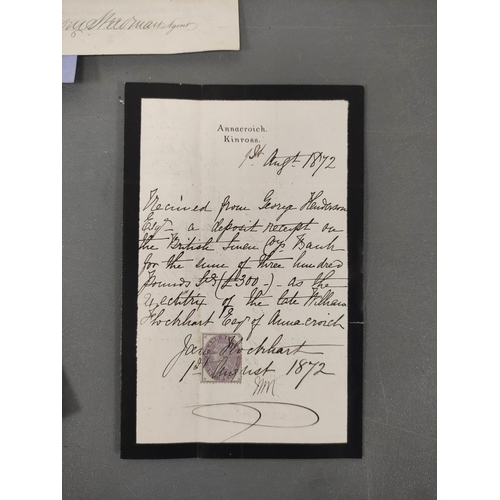 Newman Agent
Annacroich.
Kinross.
1st Augt 1872
Received from George Henderson
Esqr a deposit receipt on
the British Linen Coy Bank
for the sum of three hundred
pounds Stg (£300-) as the
executrix of the late William
Flockhart Esqr of Annacroich
Jane Flockhart
1st August 1872